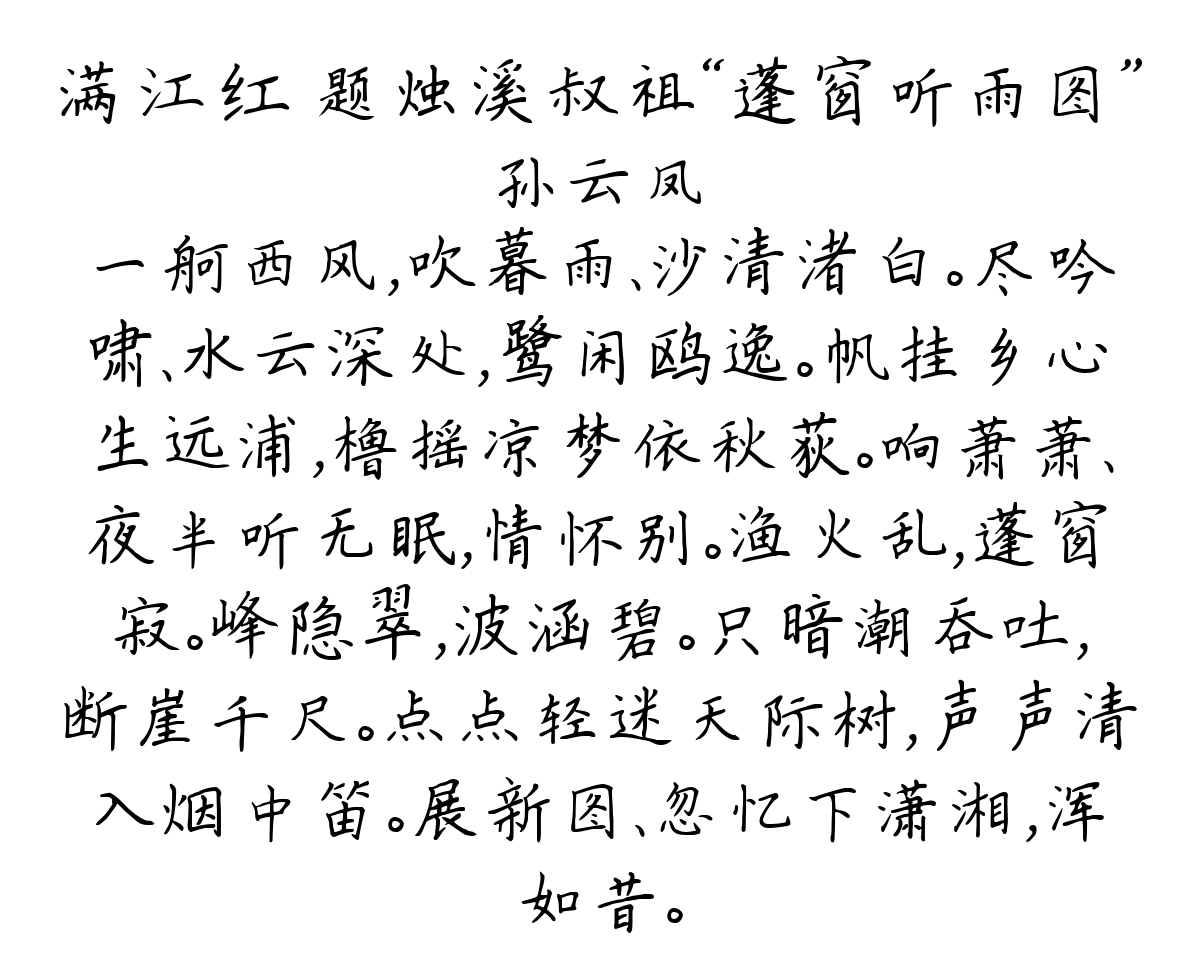 满江红 题烛溪叔祖“蓬窗听雨图”
孙云凤
一舸西风,吹暮雨、沙清渚白。尽吟
啸、水云深处,鹭闲鸥逸。帆挂乡心
生远浦,橹摇凉梦依秋荻。响萧萧、
夜半听无眠,情怀别。渔火乱,蓬窗
寂。峰隐翠,波涵碧。只暗潮吞吐,
断崖千尺。点点轻迷天际树,声声清
入烟中笛。展新图、忽忆下潇湘,浑
如昔。